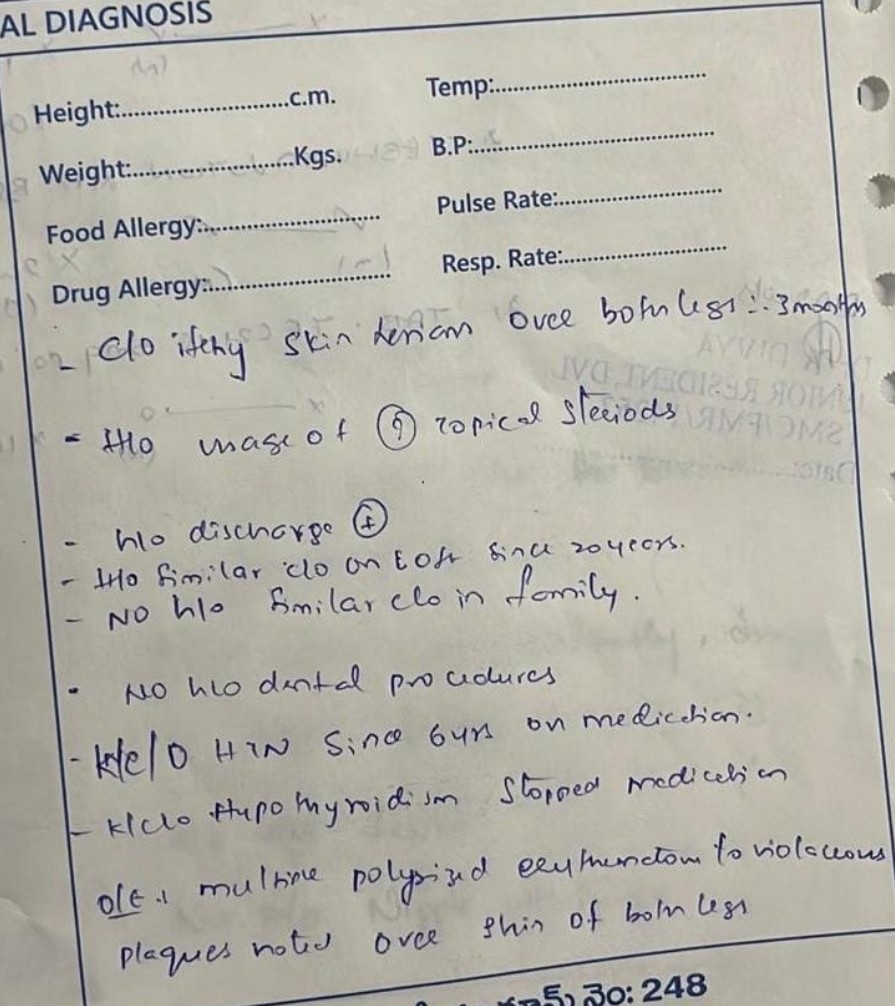 AL DIAGNOSIS
Height:............................c.m.
Temp:....................................
Weight:.........................Kgs.
B.P:.........................................
Food Allergy:..............................
Pulse Rate:............................
Drug Allergy:..............................
Resp. Rate:............................
- C/O itchy skin lesions over both legs :. 3 months
- H/o usage of (?) topical steriods
- h/o discharge (+)
- H/o Similar c/o on & off since 20 years.
- NO h/o Similar c/o in family.
- NO h/o dental procedures
- K/c/O HTN Since 6yrs on medication.
- K/c/o Hypothyroidism Stopped medication
O/E :
multiple polysized erythematous to violaceous
plaques noted over shin of both legs
JUNIOR RESIDENT, DVL
Date:
నెం: 248